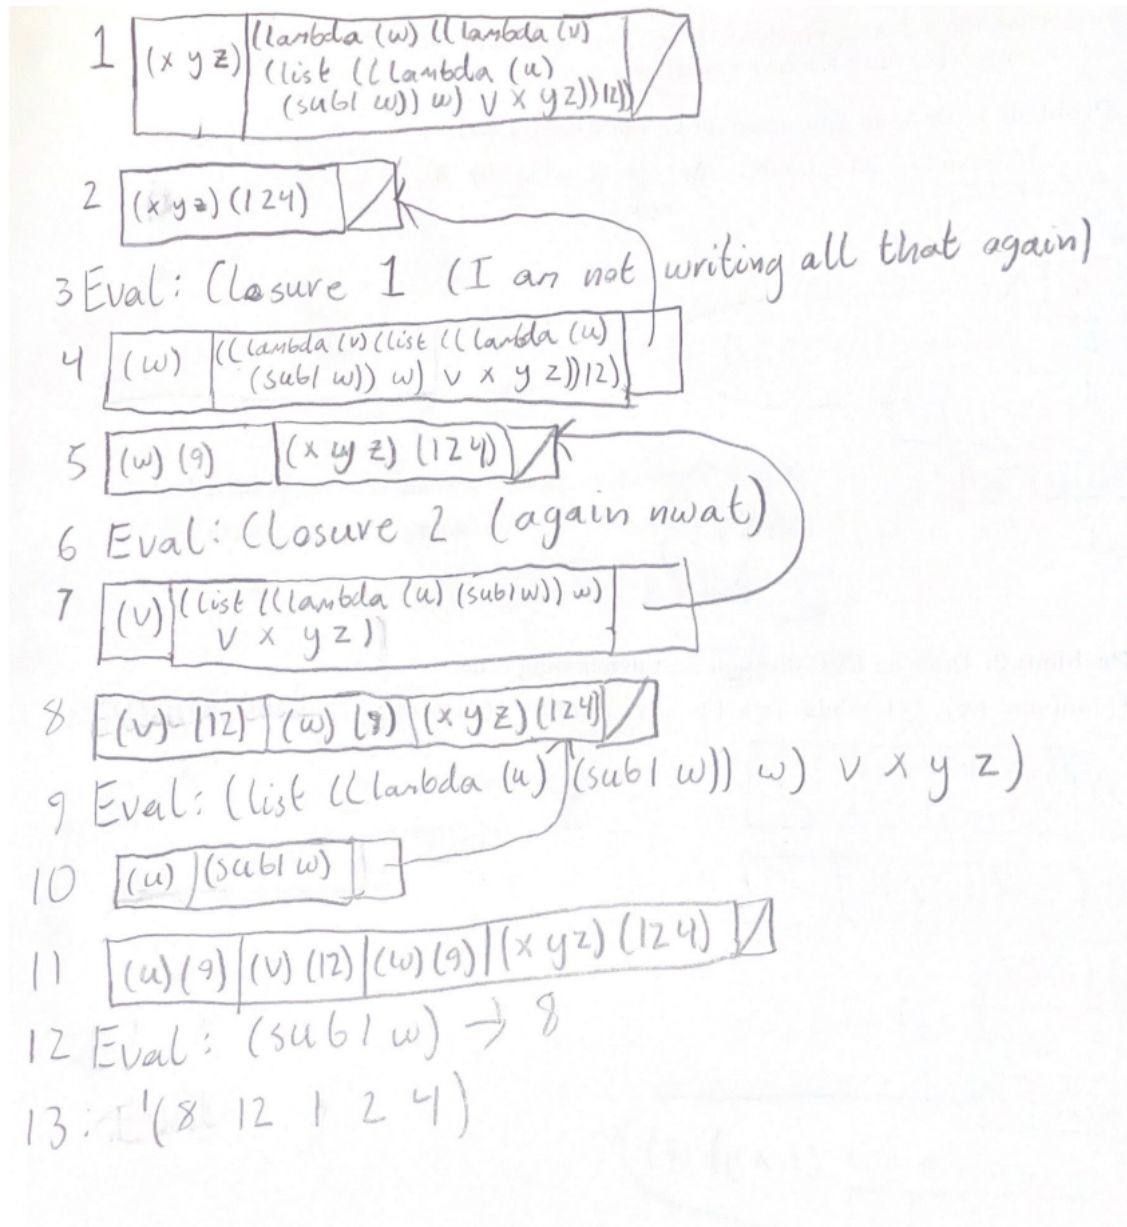 1 (x y z) (lambda (w) ((lambda (v)
(list ((lambda (u)
(sub1 w)) w) v x y z)) 12))
2 (x y z) (1 2 4)
3 Eval: Closure 1 (I am not writing all that again)
4 (w) ((lambda (v) (list ((lambda (u)
(sub1 w)) w) v x y z)) 12)
5 (w) (9) (x y z) (1 2 4)
6 Eval: Closure 2 (again nwat)
7 (v) (list ((lambda (u) (sub1 w)) w)
v x y z)
8 (v) (12) (w) (9) (x y z) (1 2 4)
9 Eval: (list ((lambda (u) (sub1 w)) w) v x y z)
10 (u) (sub1 w)
11 (u) (9) (v) (12) (w) (9) (x y z) (1 2 4)
12 Eval: (sub1 w) → 8
13: '(8 12 1 2 4)